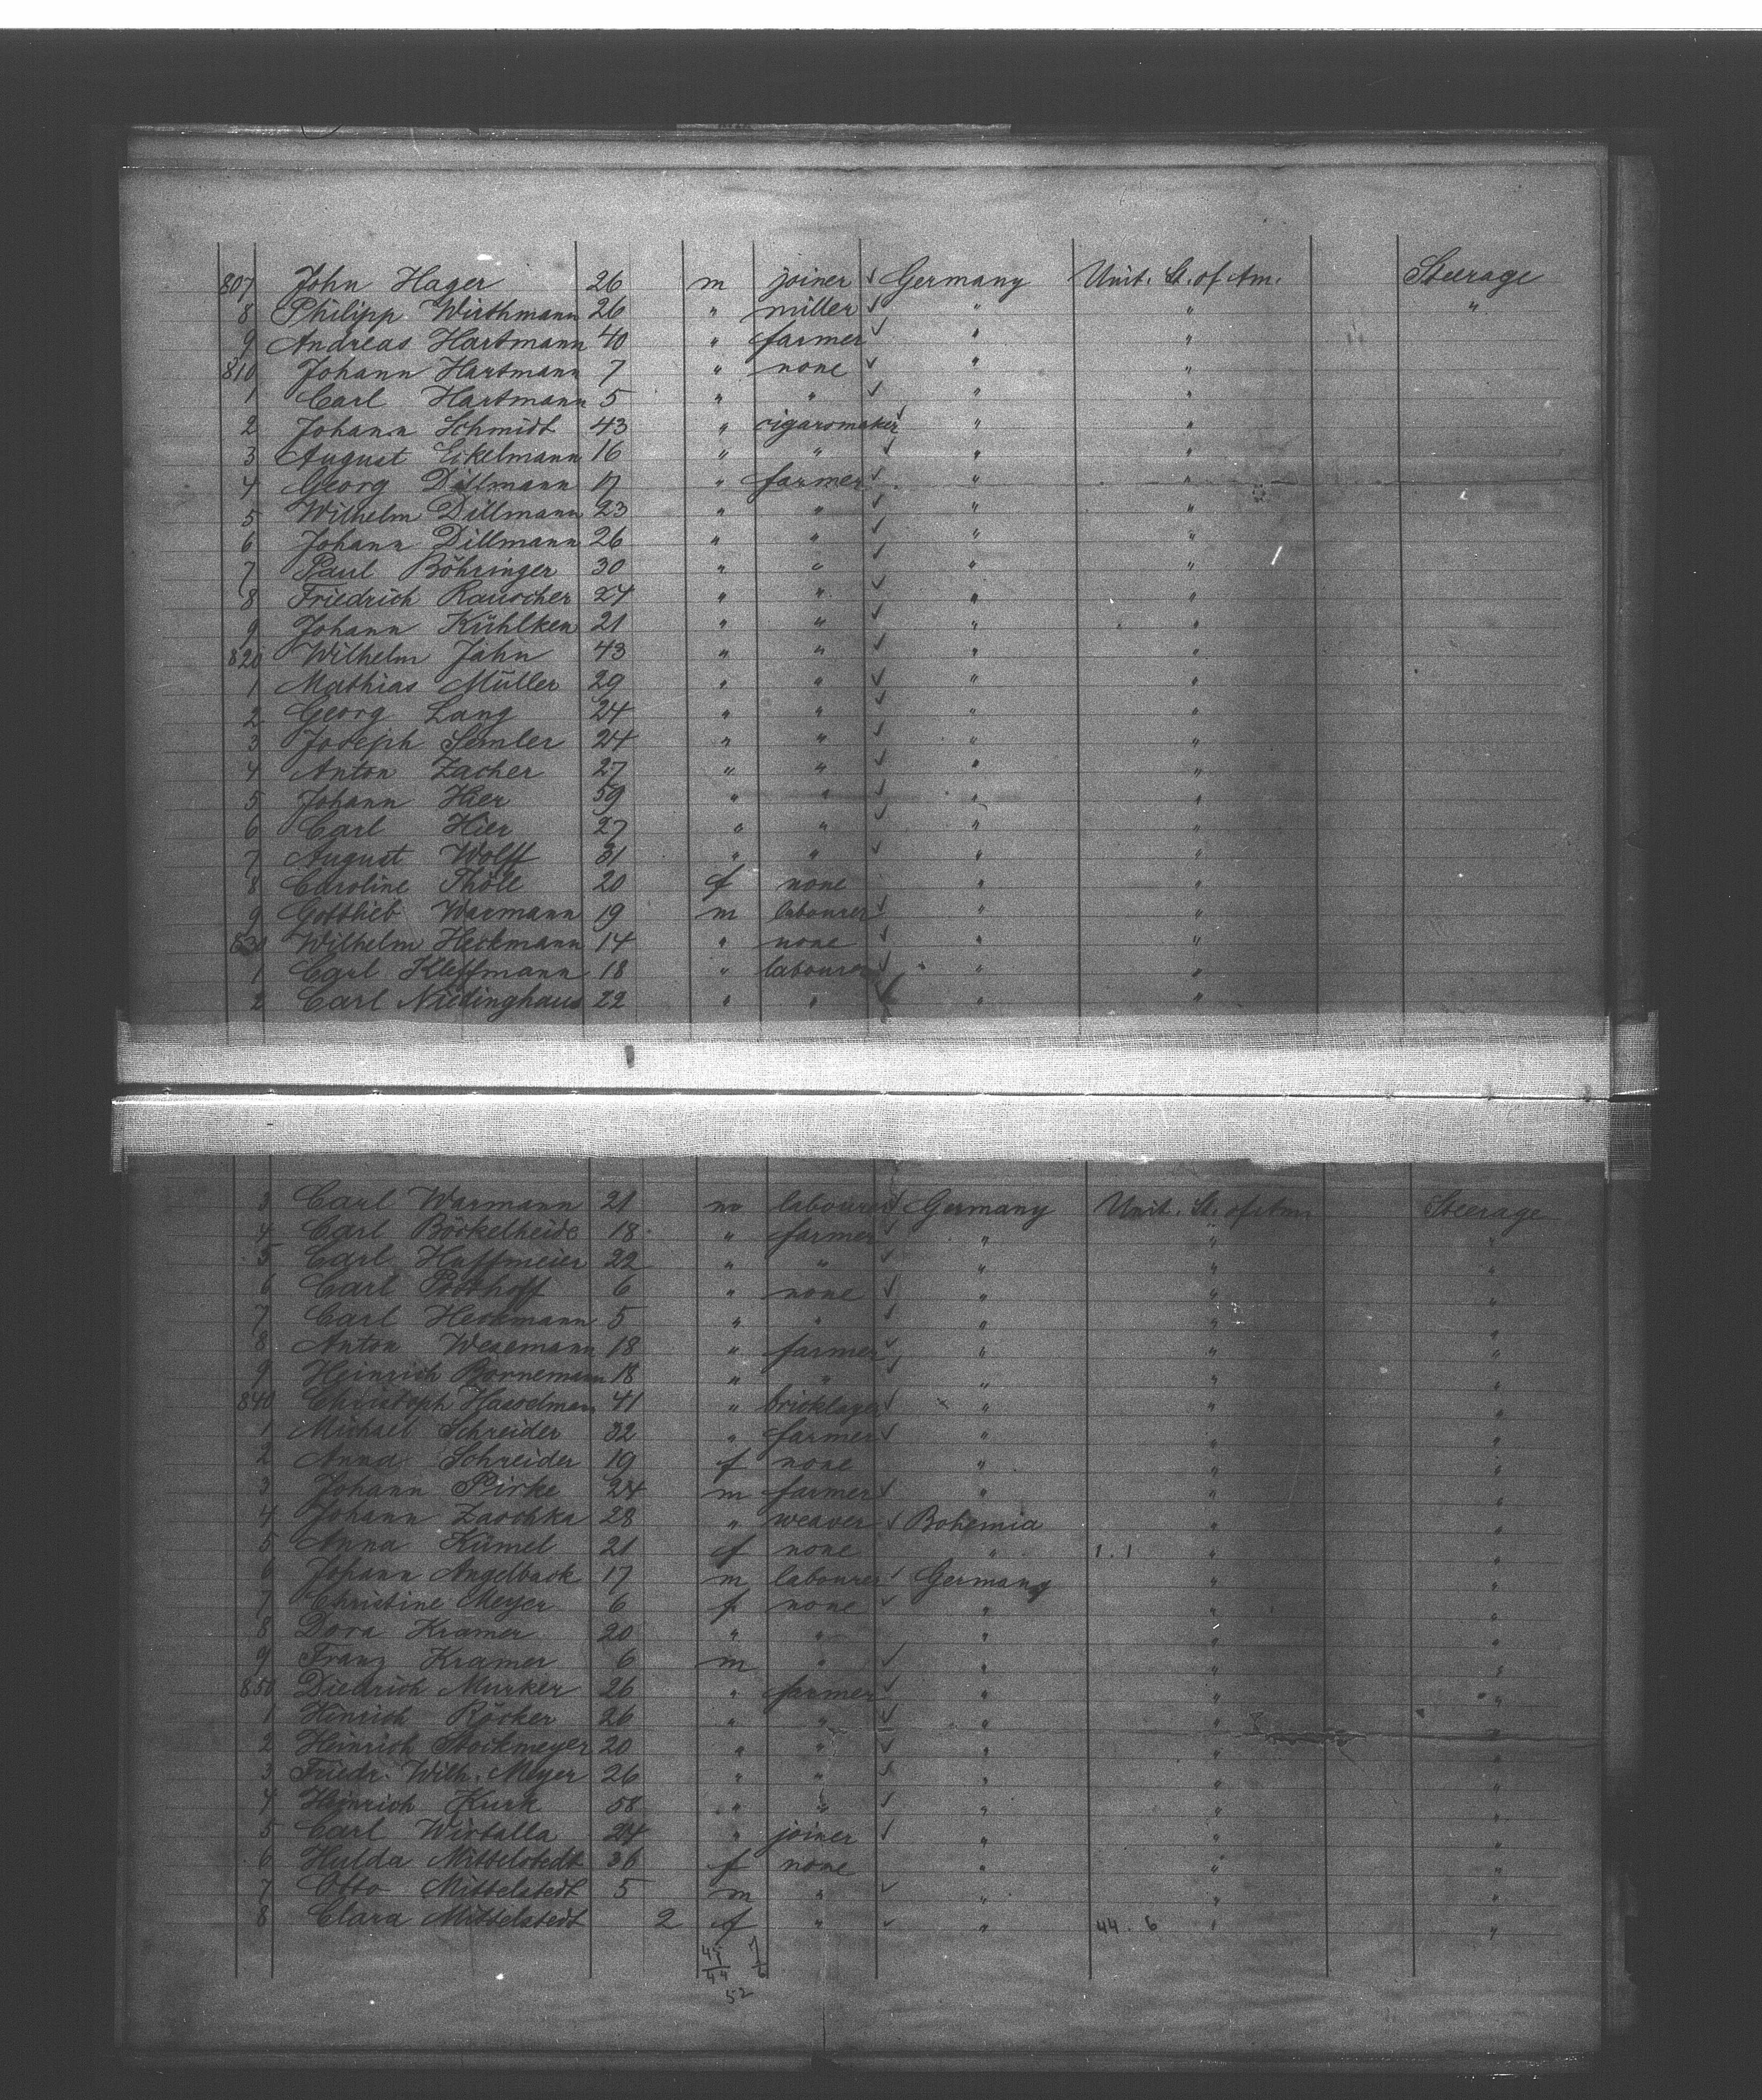 807 John Hager 26 m joiner ✓ Germany Unit. St. of Am. Steerage
8 Philipp Wirthmann 26 " miller ✓ " " "
9 Andreas Hartmann 40 " farmer ✓ " "
810 Johann Hartmann 7 " none ✓ " "
1 Carl Hartmann 5 " " ✓ " "
2 Johann Schmidt 43 " cigarsmaker ✓ " "
3 August Eikelmann 16 " " ✓ " "
4 Georg Dillmann 17 " farmer ✓ " "
5 Wilhelm Dillmann 23 " " ✓ " "
6 Johann Dillmann 26 " " ✓ " "
7 Paul Böhringer 30 " " ✓ " "
8 Friedrich Rauscher 24 " " ✓ " "
9 Johann Kühlken 21 " " ✓ " "
820 Wilhelm Jahn 43 " " ✓ " "
1 Mathias Müller 29 " " ✓ " "
2 Georg Lang 24 " " ✓ " "
3 Joseph Semler 24 " " ✓ " "
4 Anton Zacher 27 " " ✓ " "
5 Johann Hier 59 " " ✓ " "
6 Carl Hier 27 " " ✓ " "
7 August Wolff 31 " " ✓ " "
8 Caroline Thöle 20 f none " "
9 Gottlieb Warmann 19 m labourer ✓ " "
830 Wilhelm Heckmann 14 " none ✓ " "
1 Carl Kleffmann 18 " labourer ✓ " "
2 Carl Niedinghaus 22 " " ✓ " "
3 Carl Warmann 21 m labourer ✓ Germany Unit. St. of Am Steerage
4 Carl Böckelheide 18 " farmer ✓ " " "
5 Carl Hoffmeier 22 " " ✓ " " "
6 Carl Potthoff 6 " none ✓ " " "
7 Carl Heckmann 5 " " ✓ " " "
8 Anton Wesemann 18 " farmer ✓ " " "
9 Heinrich Bornemann 18 " " ✓ " " "
840 Christoph Hasselman 41 " bricklayer ✓ " " "
1 Michael Schreider 32 " farmer ✓ " " "
2 Anna Schreider 19 f none " " "
3 Johann Pirke 24 m farmer ✓ " " "
4 Johann Zaschka 28 " weaver ✓ Bohemia " "
5 Anna Kümel 21 f none " 1.1 " "
6 Johann Angelback 17 m labourer ✓ Germany " "
7 Christine Meyer 6 f none ✓ " " "
8 Dora Kramer 20 " " " " "
9 Franz Kramer 6 m " ✓ " " "
850 Diedrich Murker 26 " farmer ✓ " " "
1 Hinrich Röcker 26 " " ✓ " " "
2 Heinrich Stockmeyer 20 " " ✓ " " "
3 Friedr. Wilh. Meyer 26 " " ✓ " " "
4 Heinrich Kurk 58 " " ✓ " " "
5 Carl Wirtalla 24 " joiner ✓ " " "
6 Hulda Mittelstedt 36 f none " " "
7 Otto Mittelstedt 5 m " ✓ " " "
8 Clara Mittelstedt 2 f " ✓ " 44.6 " "
45 7
44 6
52